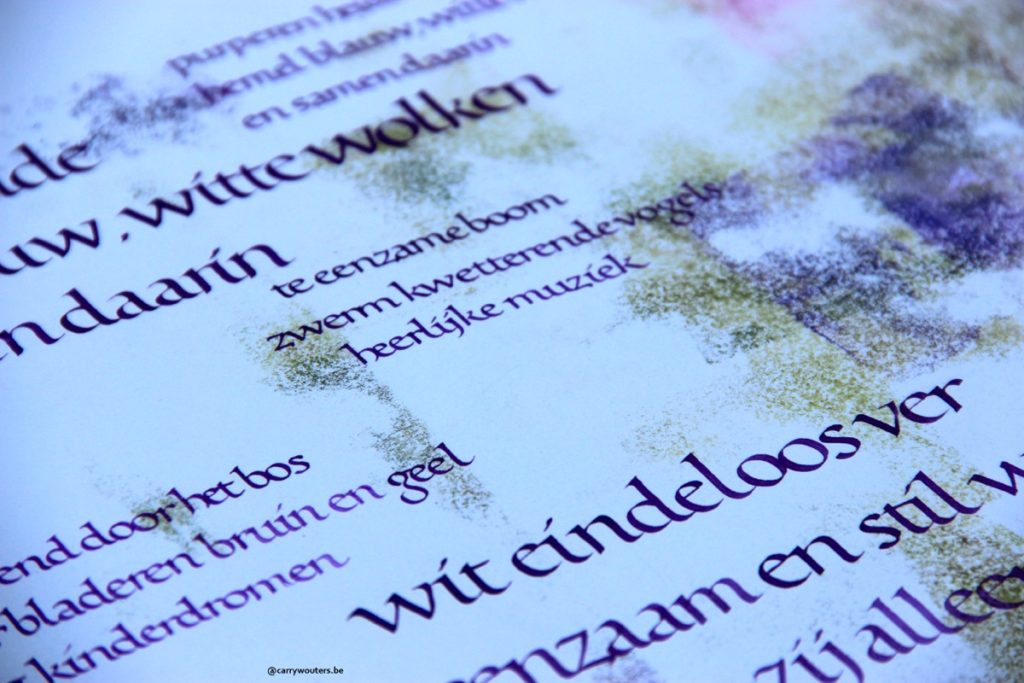 purperen
blauw, witte
en samen daarin
witte wolken
daarin
te eenzame boom
zwerm kwetterende vogels
heerlijke muziek
door het bos
bladeren bruin en geel
kinderdromen
wit eindeloos ver
en stil
zij alleen
@carrywouters.be